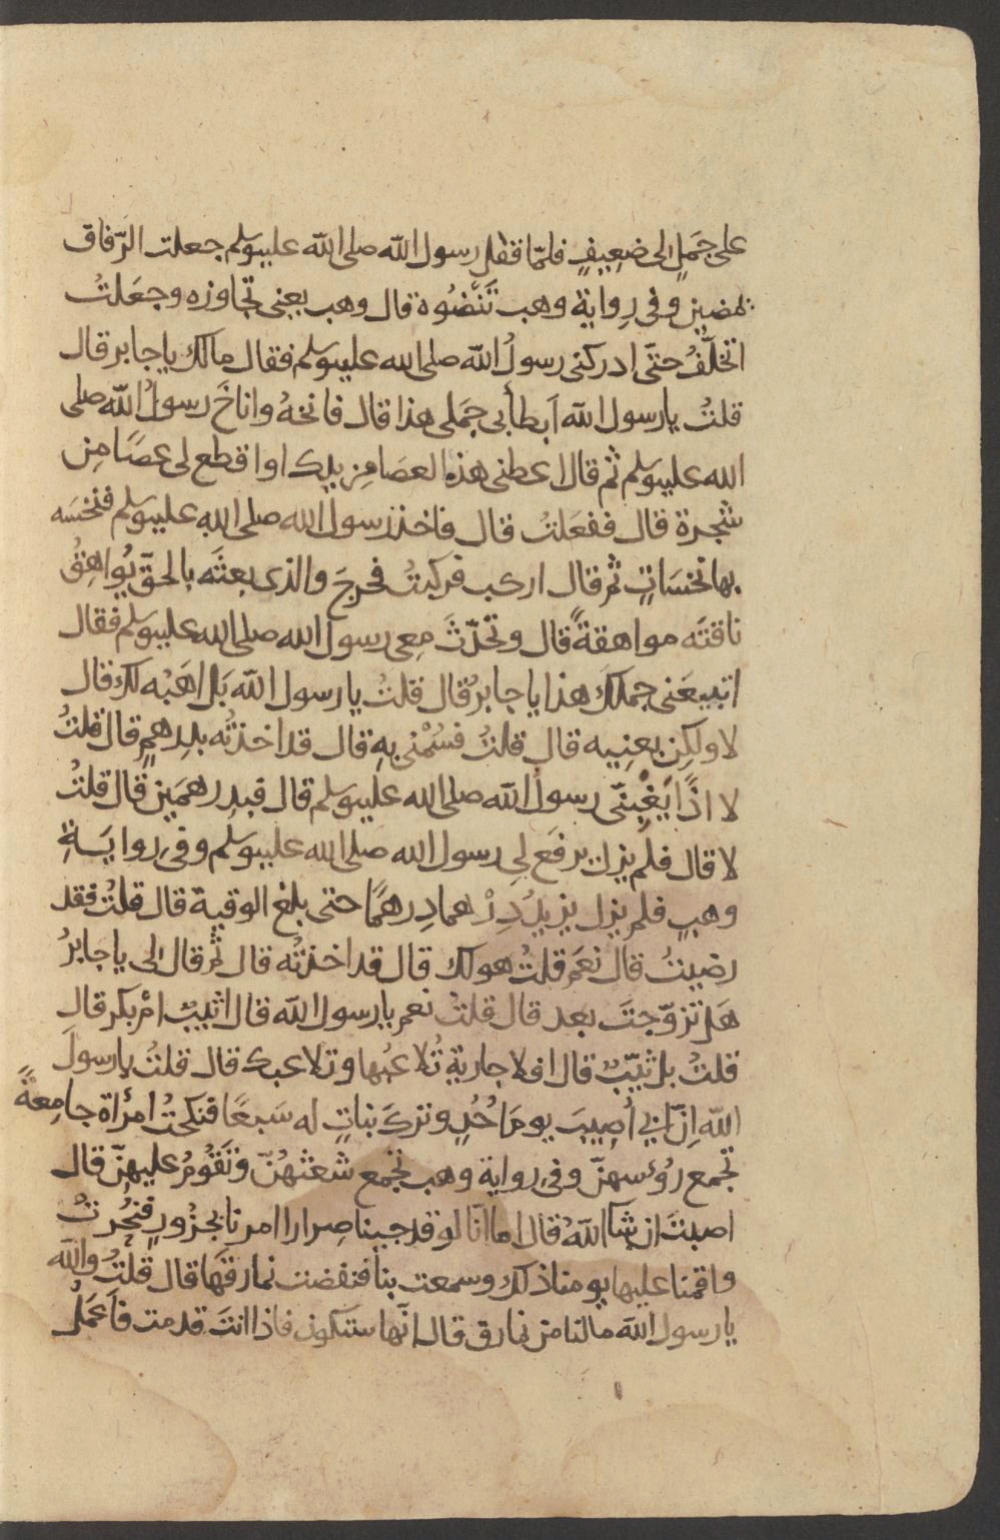 على جَمَلٍ الى ضعِيفٍ فلمّا قفل رسول الله صلى الله عليه وسلم جعلت الرّفاق
تمضين وفى رِواية وهب تَنَّضُوه قال وهب يعنى تجاوزه وجعَلتُ
اتخلَّفُ حتَّى ادركنى رسولُ الله صلى الله عليه وسلم فقال مالك يا جابر قال
قلتُ يا رسول الله اَبطأ بى جَملى هذا قال فانخهُ واناخَ رسولُ الله صلى
الله عليه وسلم ثم قال اعطنى هذه العصَا مِن يدِك او اقطع لى عصًا مِن
شجرة قال ففعَلتُ قال فاخذ رسول الله صلى الله عليه وسلم فنخسَه
بها نخسَاتٍ ثم قال اركب فركبتُ فخرجَ والذى بعثَه بالحقّ يُواهِقُ
ناقتَه مواهقةً قال وتحدّثَ معِى رسول الله صلى الله عليه وسلم فقال
اتبيعَنى جملكَ هذا يا جابرُ قال قلتُ يا رسول الله بَل اهَبُه لك قال
لا ولكِن بعنِيه قال قلتُ فسُمْنى بهِ قال قد اخذتُه بدِرهمٍ قال قلتُ
لا اذًا يَغْبِننّى رسول الله صلى الله عليه وسلم قال فبدِرهمَين قال قلتُ
لا قال فلم يزل يرفَع لِى رسول الله صلى الله عليه وسلم وفى رِوايَةِ
وهبٍ فلم يزل يزيدُ دِرْهما دِرهمًا حتى بلغ الوقية قال قلتُ فقد
رضيتُ قال نعَم قلتُ هو لك قال قد اخذتُه قال ثم قال لى يا جابرُ
هَل تزوّجتَ بعد قال قلتُ نعم يا رسول الله قال اثيّبٌ ام بكر قال
قلتُ بل ثيّبٌ قال افلا جارية تُلاعبُها وتلاعبك قال قلتُ يا رسولَ
الله اِنّ اَبِي اُصِيبَ يومَ اُحُدٍ وتركَ بناتٍ له سَبعًا فنكحتُ امرأة جامِعةً
تجمع رؤسهنّ وفى رِواية وهب تجمع شعثهُنّ وتَقُومُ عليهِنّ قال
اصبتَ ان شآ اللهُ قال اما انّا لو قد جينا صِرارا امرنا بجزُورٍ فنُحِرتْ
واقمنا عليها يومنا ذلك وسمعت بنا فنفضت نمارقَها قال قلتُ والله
يا رسول الله مالنا من نمارق قال انّها ستكون فاذا انتَ قدمت فاَعمَلْ